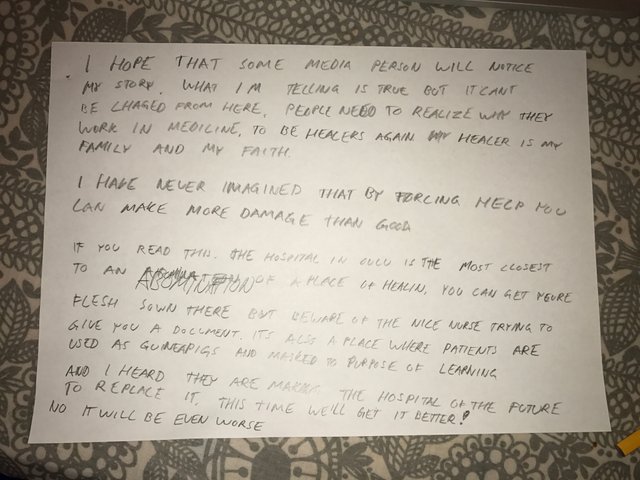 I HOPE THAT SOME MEDIA PERSON WILL NOTICE
MY STORY. WHAT I M TELLING IS TRUE BUT IT CANT
BE CHAGED FROM HERE. PEOPLE NEED TO REALIZE WHY THEY
WORK IN MEDICINE, TO BE HEALERS AGAIN MY HEALER IS MY
FAMILY AND MY FAITH.
I HAVE NEVER IMAGINED THAT BY FORCING HELP YOU
CAN MAKE MORE DAMAGE THAN GOOD
IF YOU READ THIS. THE HOSPITAL IN OULU IS THE MOST CLOSEST
TO AN ABOMINATION OF A PLACE OF HEALIN, YOU CAN GET YOURE
FLESH SOWN THERE BUT BEWARE OF THE NICE NURSE TRYING TO
GIVE YOU A DOCUMENT. ITS ALSO A PLACE WHERE PATIENTS ARE
USED AS GUINEAPIGS AND MASKED TO PURPOSE OF LEARNING
AND I HEARD THEY ARE MAKING THE HOSPITAL OF THE FUTURE
TO REPLACE IT. THIS TIME WE'LL GET IT BETTER!
NO IT WILL BE EVEN WORSE